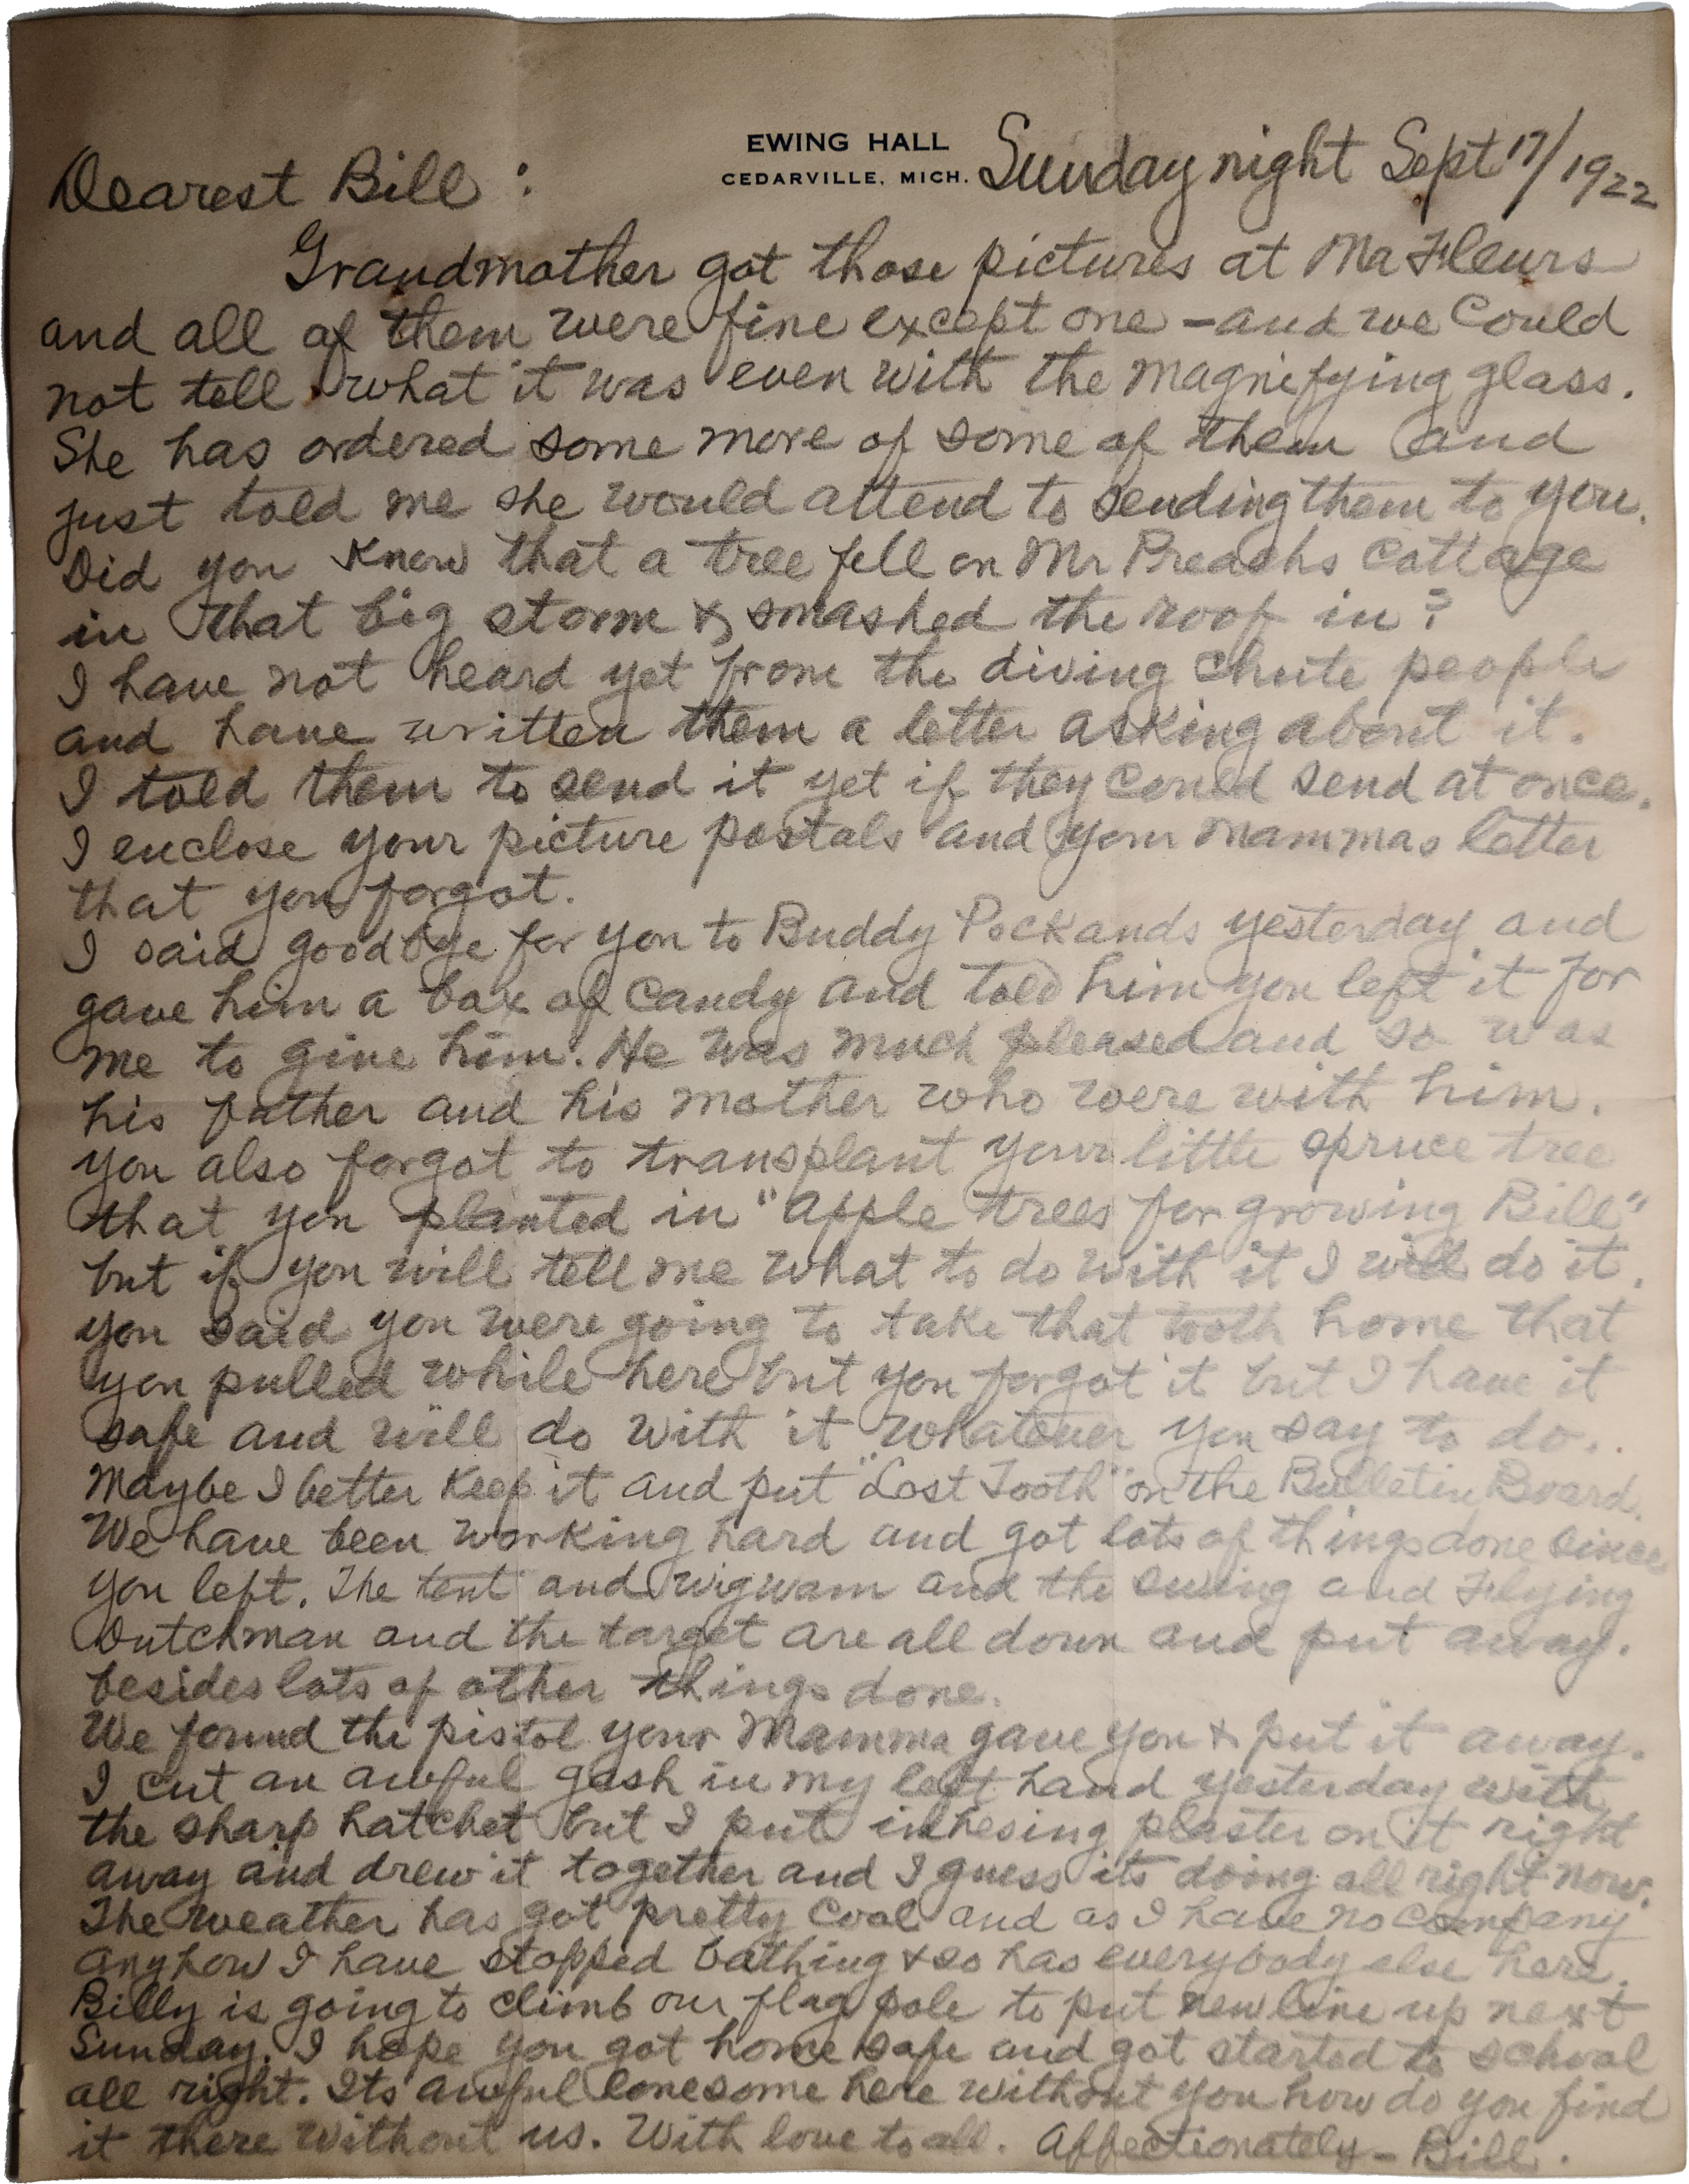 EWING HALL
CEDARVILLE, MICH.
Sunday night Sept 17/1922
Dearest Bill :
Grandmother got those pictures at Ma Fleurs
and all of them were fine except one - and we could
not tell what it was even with the magnifying glass.
She has ordered some more of some of them and
just told me she would attend to sending them to you.
Did you know that a tree fell on Mr Preachs cottage
in that big storm & smashed the roof in?
I have not heard yet from the diving chute people
and have written them a letter asking about it.
I told them to send it yet if they could send at once.
I enclose your picture postals and your mammas letter
that you forgot.
I said goodbye for you to Buddy Pockands yesterday and
gave him a box of candy and told him you left it for
me to give him. He was much pleased and so was
his father and his mother who were with him.
you also forgot to transplant your little spruce tree
that you planted in "apple trees for growing Bill"
but if you will tell me what to do with it I will do it.
you said you were going to take that tooth home that
you pulled while here but you forgot it but I have it
safe and will do with it whatever you say to do..
Maybe I better keep it and put "Lost Tooth" on the Bulletin Board.
We have been working hard and got lots of things done since
you left. The tent and wigwam and the swing and Flying
Dutchman and the target are all down and put away.
besides lots of other things done.
We found the pistol your Mamma gave you & put it away.
I cut an awful gash in my left hand yesterday with
the sharp hatchet but I put inhesing plaster on it right
away and drew it together and I guess its doing all right now.
The weather has got pretty cool and as I have no company
anyhow I have stopped bathing & so has everybody else here.
Billy is going to climb our flag pole to put new line up next
Sunday. I hope you got home safe and got started to school
all right. Its awful lonesome here without you how do you find
it there without us. With love to all. Affectionately - Bill.